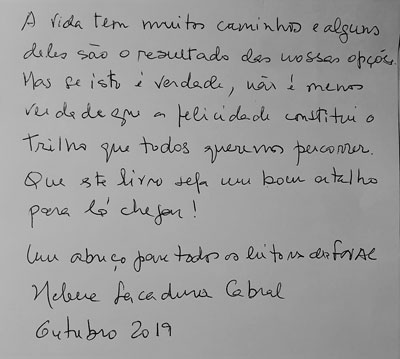 A vida tem muitos caminhos e alguns
deles são o resultado das nossas opções.
Mas se isto é verdade, não é menos
verdade que a felicidade constitui o
trilho que todos queremos percorrer.
Que este livro seja um bom atalho
para lá chegar!
Um abraço para todos os leitores da FNAC
Helena Sacadura Cabral
Outubro 2019